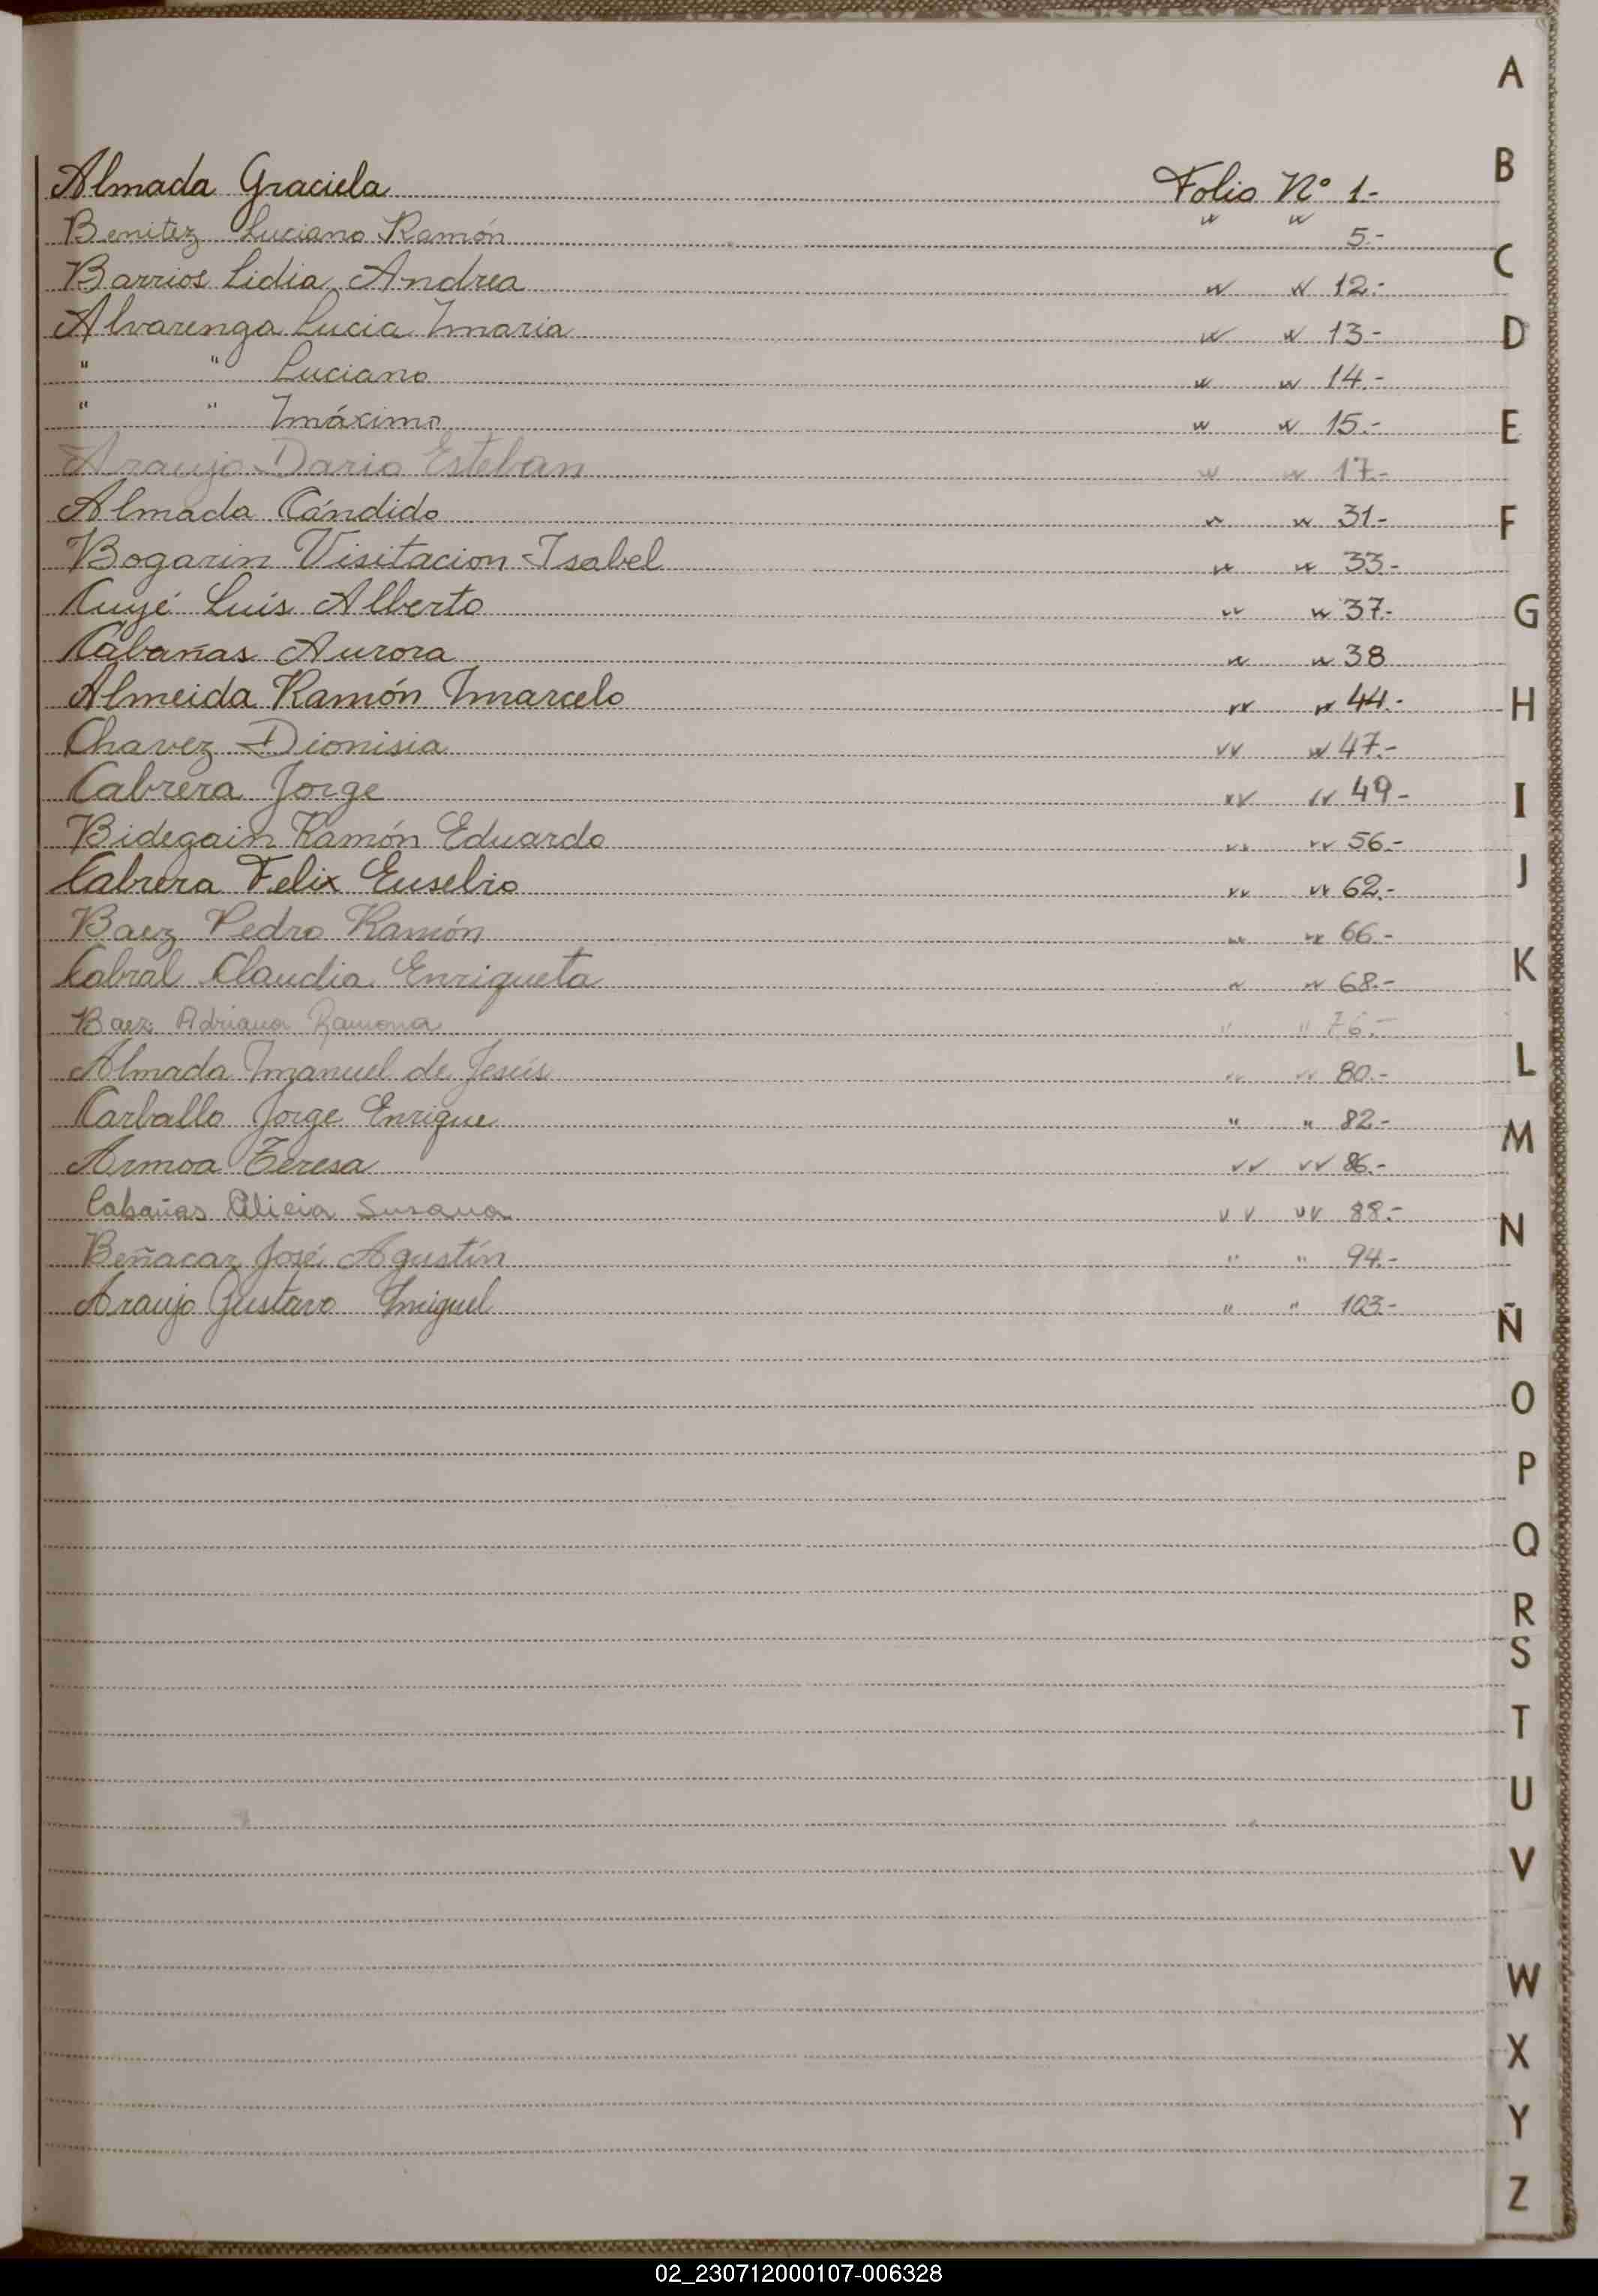 Almada Graciela Folio Nº 1.-
Benitez Luciano Ramón " " 5.-
Barrios Lidia Andrea " " 12.-
Alvarenga Lucia Maria " " 13.-
" " Luciano " " 14.-
" " Máximo " " 15.-
Araujo Dario Esteban " " 17.-
Almada Cándido " " 31.-
Bogarin Visitacion Isabel " " 33.-
Cuyé Luis Alberto " " 37.-
Cabañas Aurora " " 38
Almeida Ramón Marcelo " " 44.-
Chavez Dionisia " " 47.-
Cabrera Jorge " " 49.-
Bidegain Ramón Eduardo " " 56.-
Cabrera Felix Eusebio " " 62.-
Baez Pedro Ramón " " 66.-
Cabral Claudia Enriqueta " " 68.-
Baez Adriana Ramona " " 76.-
Almada Manuel de Jesús " " 80.-
Carballo Jorge Enrique " " 82.-
Armoa Teresa " " 86.-
Cabañas Alicia Susana " " 88.-
Beñacar José Agustín " " 94.-
Araujo Gustavo Miguel " " 103.-
A
B
C
D
E
F
G
H
I
J
K
L
M
N
Ñ
O
P
Q
R
S
T
U
V
W
X
Y
Z
02_230712000107-006328